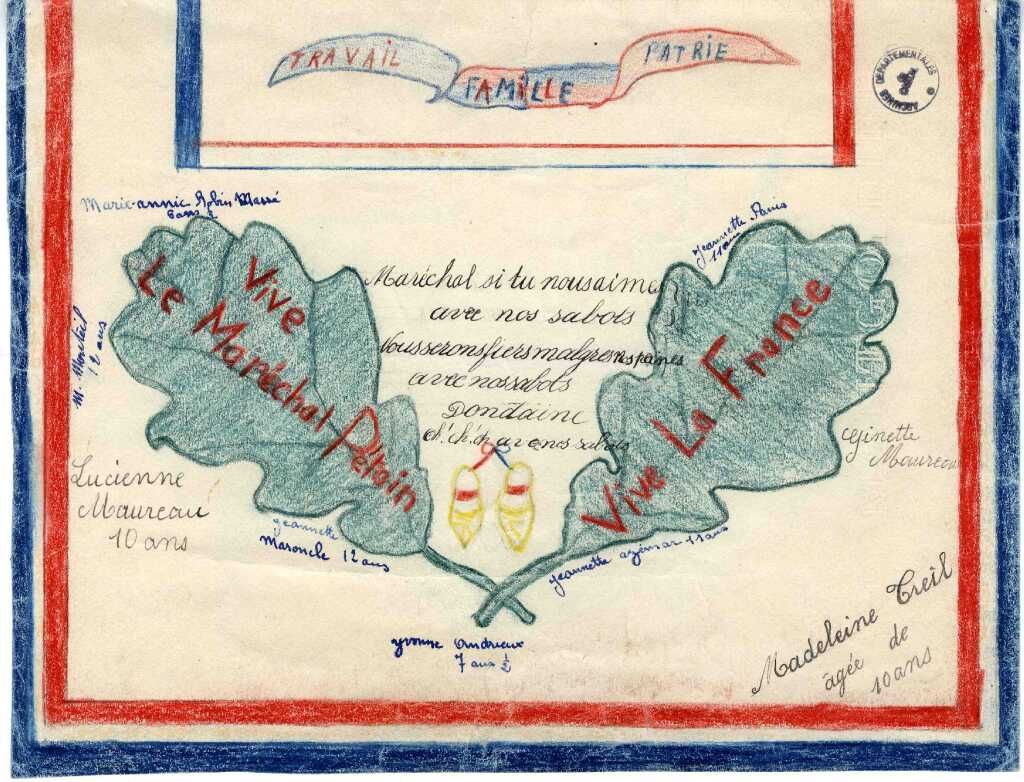 TRAVAIL
FAMILLE
PATRIE
ARCHIVES DÉPARTEMENTALES
Marie-annic Robin Massé
6 ans ½
Jeannette Pania
11 ans
Vive
Le Maréchal Pétain
Vive La France
Maréchal si tu nous aimes
avec nos sabots
Nous serons fiers malgré nos peines
avec nos sabots
Dondaine
oh! oh! oh avec nos sabots
12 ans
Lucienne
Maureau
10 ans
Ginette
Maureau
jeannette
Maroncle 12 ans
jeannette azémar 11 ans
yvonne Andrieux
7 ans ½
Madeleine Treil
âgée de
10 ans